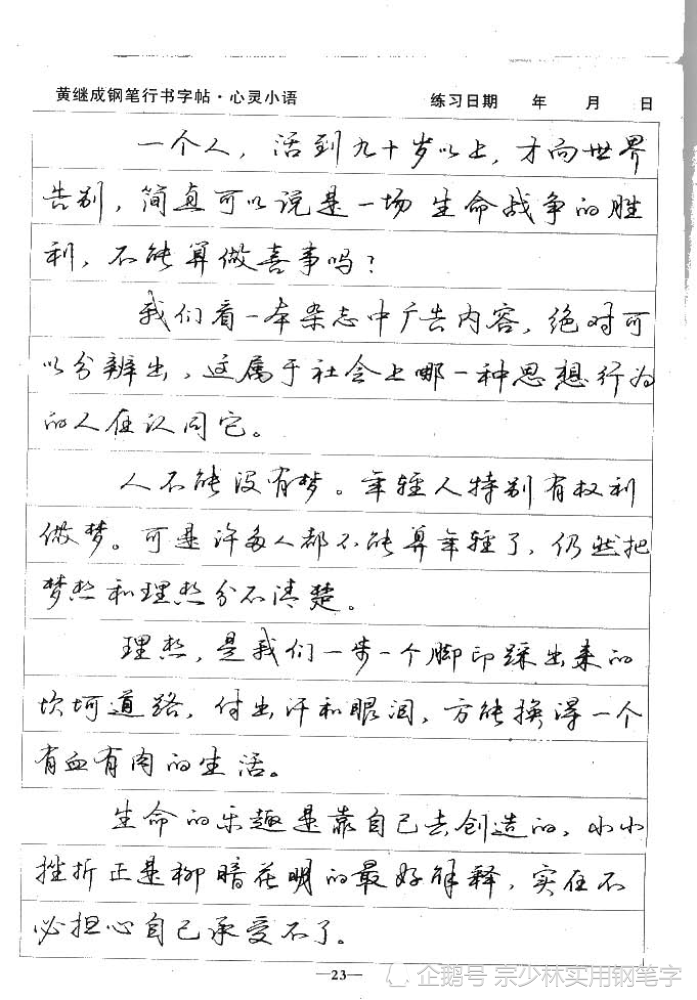 黄继成钢笔行书字帖·心灵小语 练习日期 年 月 日
一个人，活到九十岁以上，才向世界
告别，简直可以说是一场生命战争的胜
利，不能算做喜事吗？
我们看一本杂志中广告内容，绝对可
以分辨出，这属于社会上哪一种思想行为
的人在认同它。
人不能没有梦。年轻人特别有权利
做梦。可是许多人都不能算年轻了，仍然把
梦想和理想分不清楚。
理想，是我们一步一个脚印踩出来的
坎坷道路，付出汗和眼泪，方能换得一个
有血有肉的生活。
生命的乐趣是靠自己去创造的，小小
挫折正是柳暗花明的最好解释，实在不
必担心自己承受不了。
—23—
企鹅号 宗少林实用钢笔字